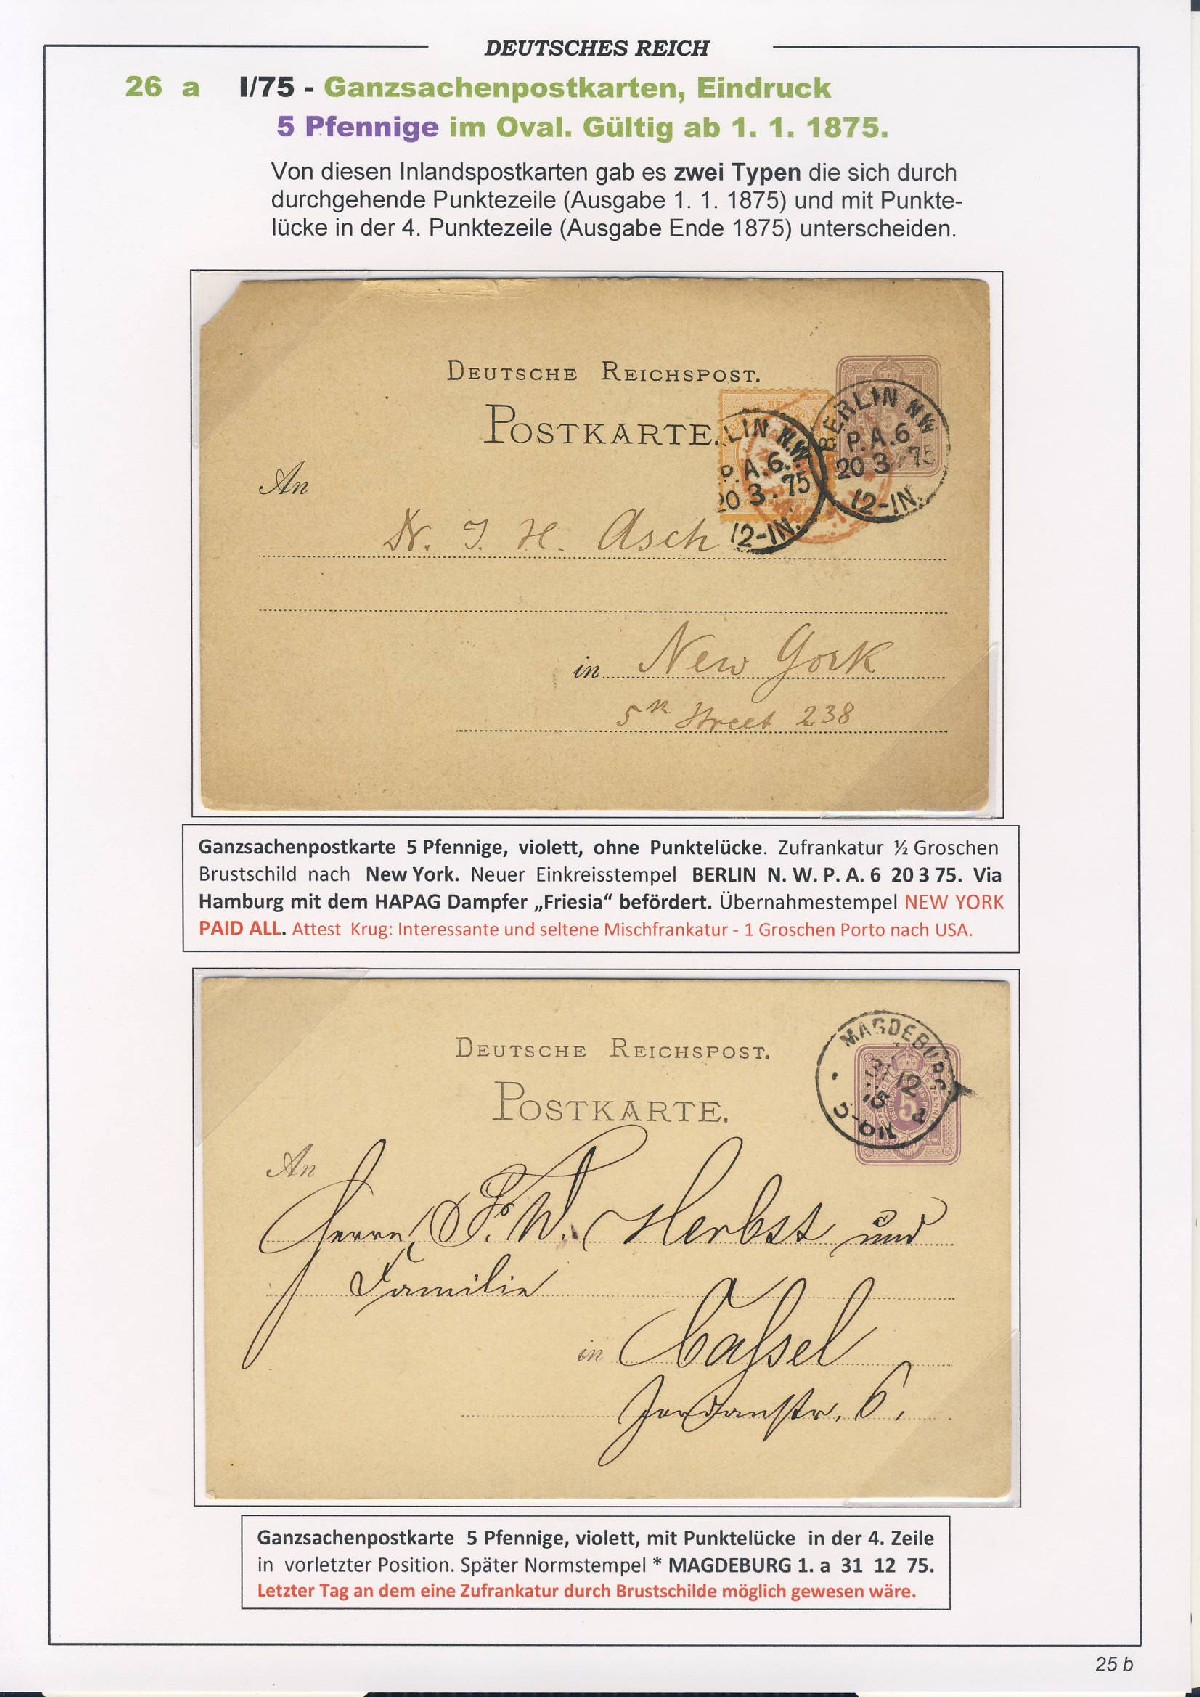 DEUTSCHES REICH
26 a I/75 - Ganzsachenpostkarten, Eindruck
5 Pfennige im Oval. Gültig ab 1. 1. 1875.
Von diesen Inlandspostkarten gab es zwei Typen die sich durch
durchgehende Punktezeile (Ausgabe 1. 1. 1875) und mit Punkte-
lücke in der 4. Punktezeile (Ausgabe Ende 1875) unterscheiden.
DEUTSCHE REICHSPOST.
POSTKARTE.
LIN N.W.
P.A.6.
20 3. 75
12-1N.
BERLIN N.W
P.A.6
20 3. 75
12-1N.
An
Dr. J. H. Asch
in New York
5th Street 238
Ganzsachenpostkarte 5 Pfennige, violett, ohne Punktelücke. Zufrankatur ½ Groschen
Brustschild nach New York. Neuer Einkreisstempel BERLIN N. W. P. A. 6 20 3 75. Via
Hamburg mit dem HAPAG Dampfer „Friesia“ befördert. Übernahmestempel NEW YORK
PAID ALL. Attest Krug: Interessante und seltene Mischfrankatur - 1 Groschen Porto nach USA.
DEUTSCHE REICHSPOST.
POSTKARTE.
MAGDEBURG
12
5-6N
5
An
Herrn F. W. Herbst und
Familie
in Cassel
Jordanstr. 6.
Ganzsachenpostkarte 5 Pfennige, violett, mit Punktelücke in der 4. Zeile
in vorletzter Position. Später Normstempel * MAGDEBURG 1. a 31 12 75.
Letzter Tag an dem eine Zufrankatur durch Brustschilde möglich gewesen wäre.
25 b